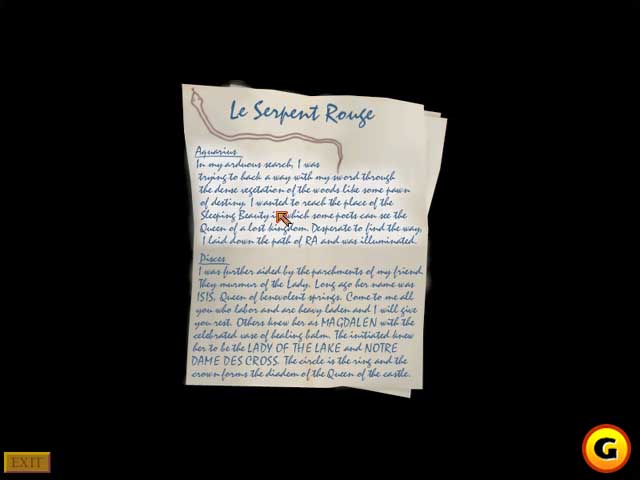 Le Serpent Rouge
Aquarius
In my arduous search, I was
trying to hack a way with my sword through
the dense vegetation of the woods like some pawn
of destiny. I wanted to reach the place of the
Sleeping Beauty in which some poets can see the
Queen of a lost kingdom. Desperate to find the way,
I laid down the path of RA and was illuminated.
Pisces
I was further aided by the parchments of my friend.
They murmur of the Lady. Long ago her name was
ISIS, Queen of benevolent springs. Come to me all
you who labor and are heavy laden and I will give
you rest. Others knew her as MAGDALEN with the
celebrated vase of healing balm. The initiated knew
her to be the LADY OF THE LAKE and NOTRE
DAME DES CROSS. The circle is the ring and the
crown forms the diadem of the Queen of the castle.
EXIT
G